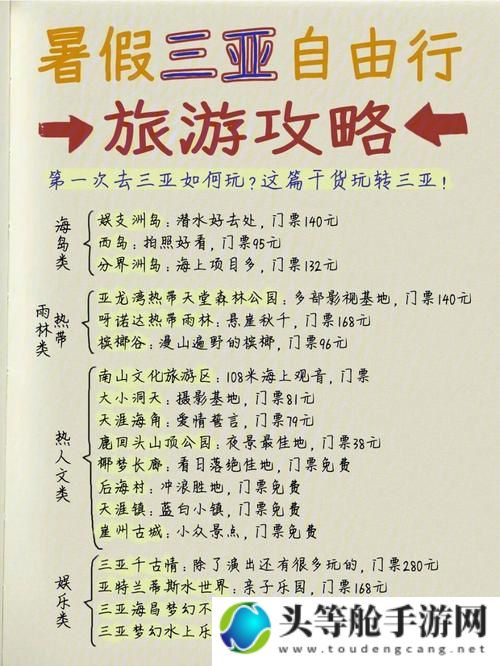 暑假三亚自由行
旅游攻略
第一次去三亚如何玩?这篇干货玩转三亚!
海岛类
蜈支洲岛:潜水好去处,门票140元
西岛:拍照好看,门票95元
分界洲岛:海上项目多,门票132元
热带雨林类
亚龙湾热带天堂森林公园:多部影视基地,门票140元
呀诺达热带雨林:悬崖秋千,门票168元
槟榔谷:漫山遍野的槟榔,门票96元
热人文类
南山文化旅游区:108米海上观音,门票
大小洞天:摄影基地,门票81元
天涯海角:爱情誓言,门票79元
鹿回头山顶公园:夜景最佳地,门票38元
椰梦长廊:看日落绝佳地,门票免费
后海村:冲浪胜地,门票免费
天涯镇:蓝白小镇,门票免费
崖州古城:小众景点,门票免费
娱乐类
三亚千古情:除了演出还有很多玩的,门票280元
亚特兰蒂斯水世界:亲子乐园,门票168元
三亚海昌梦幻不
三亚梦幻水上乐
头等舱手游网
www.toudengcang.net